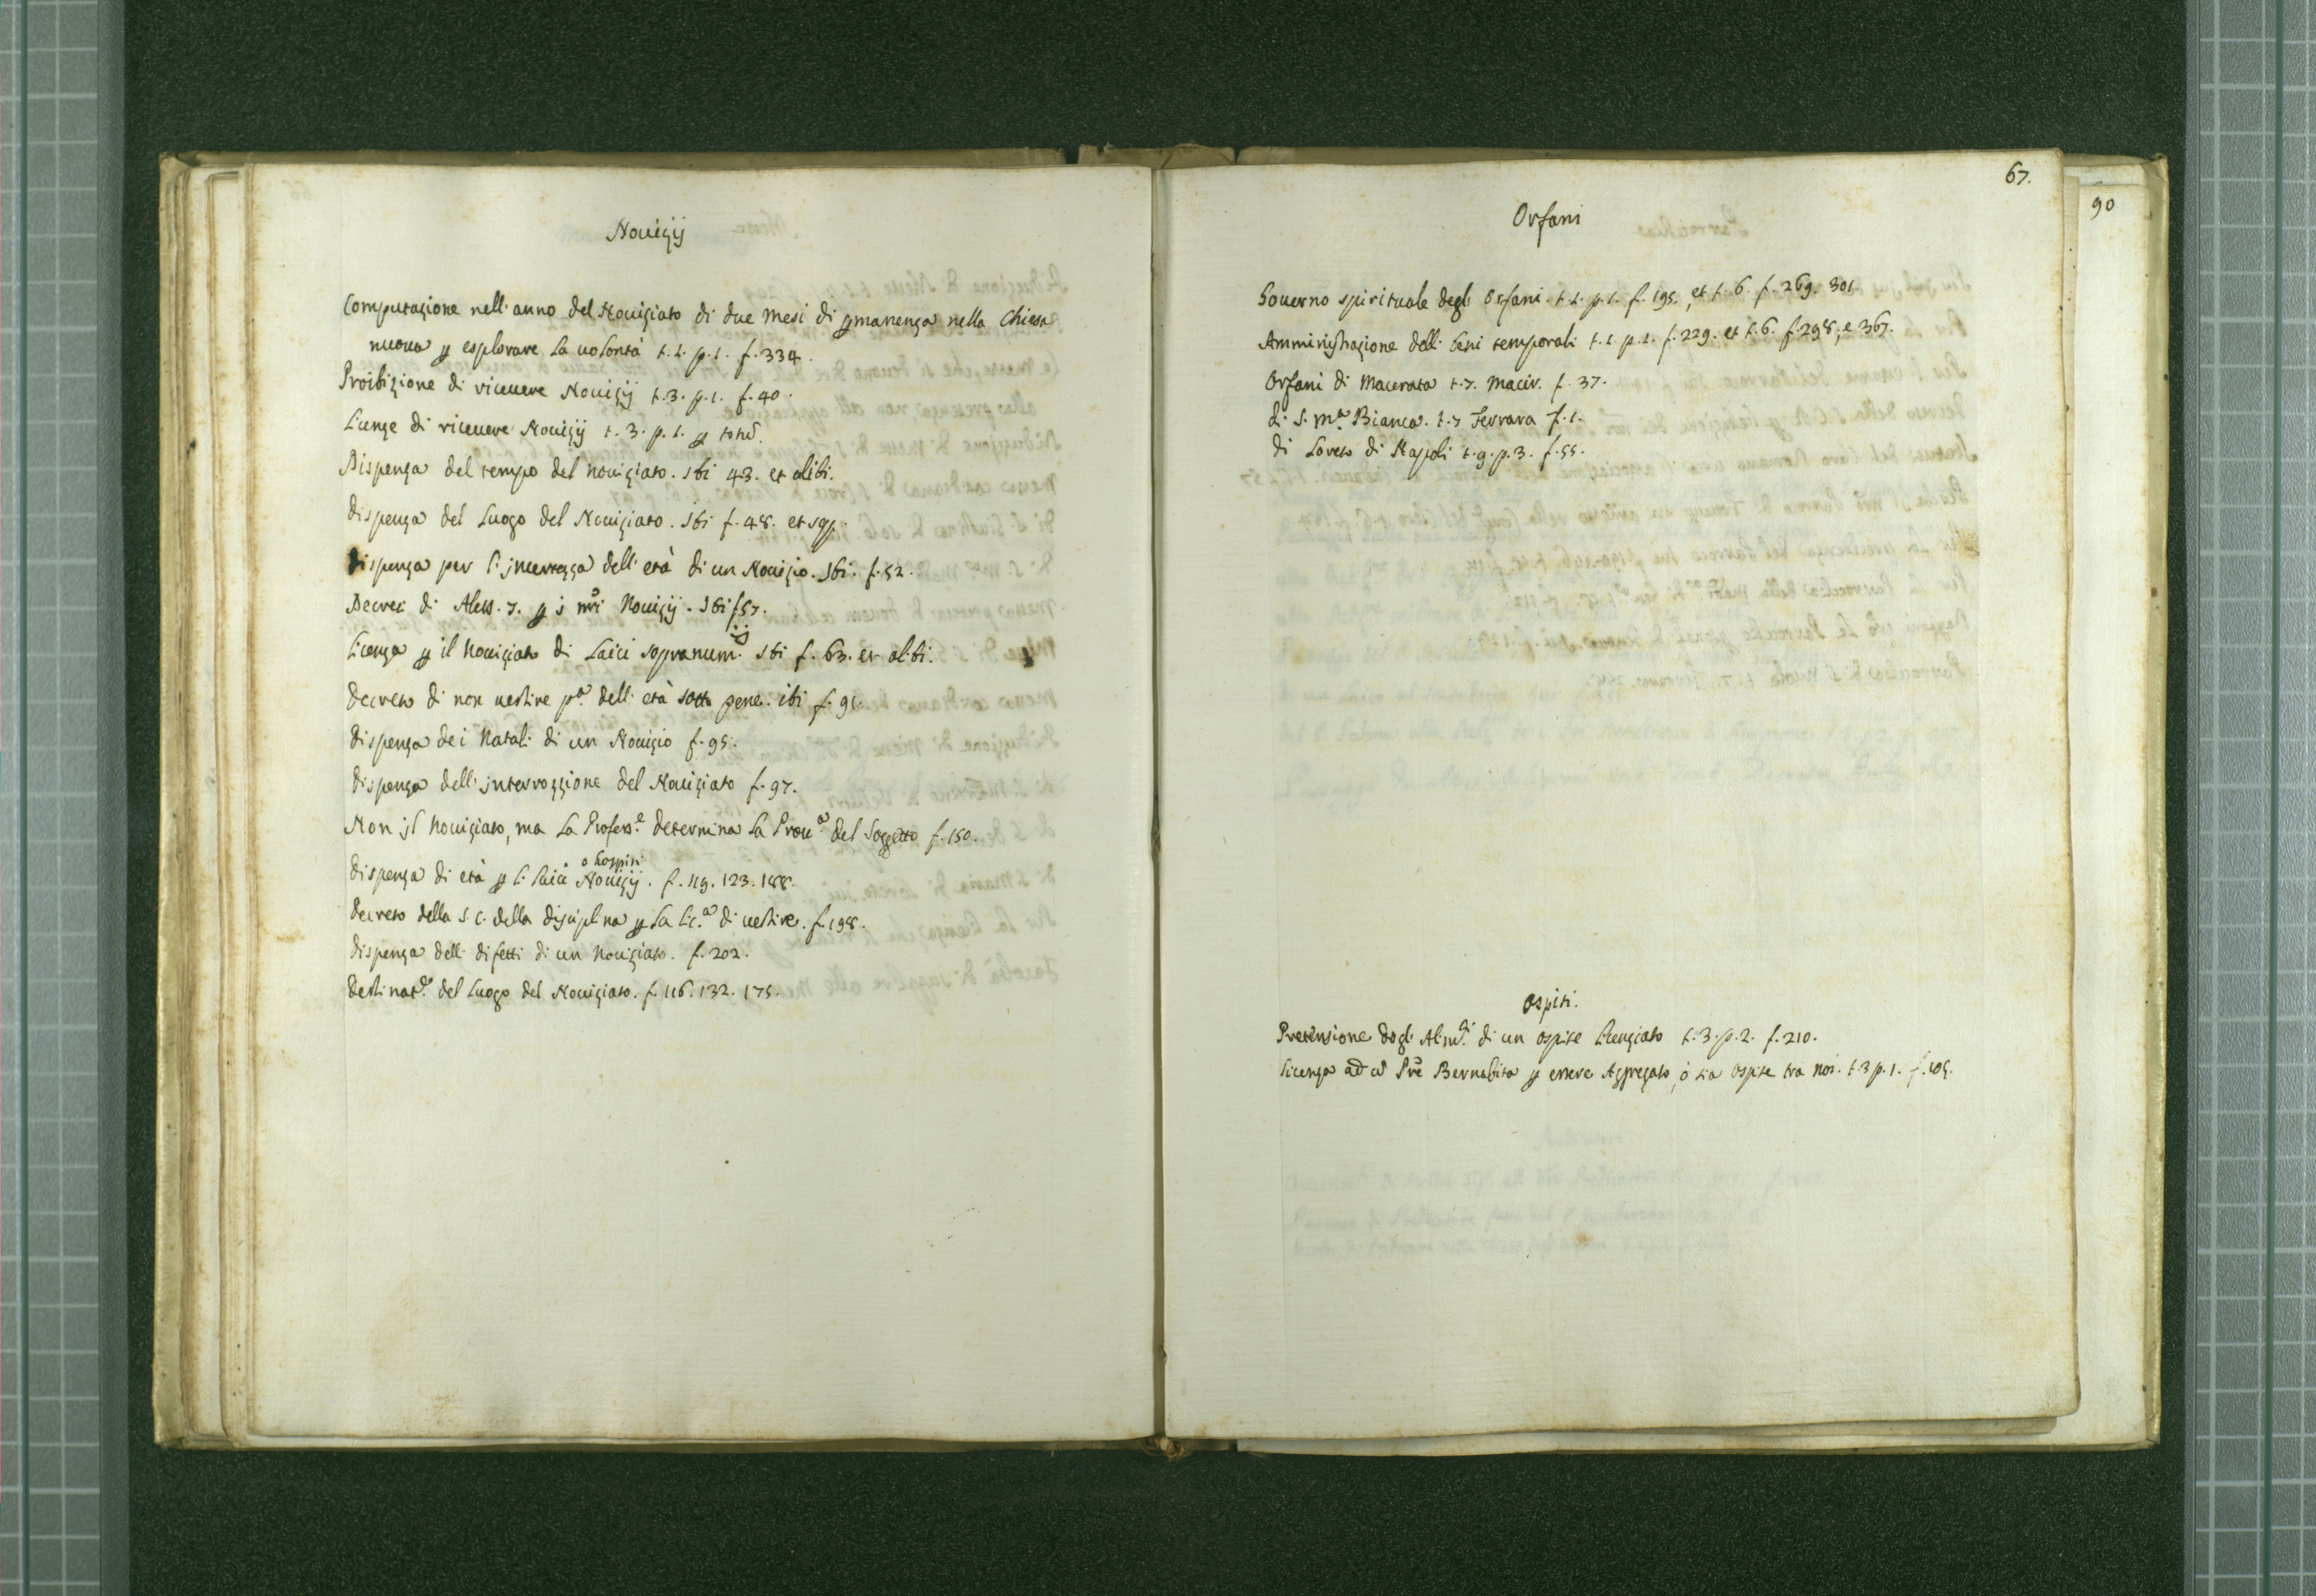 Nouizij
Computazione nell'anno del Nouiziato di due mesi di pmanenza nella Chiesa
nuoua p esplorare la uolontà t. 1. p. 1. f. 334.
Proibizione di riceuere Nouizij t. 3. p. 1. f. 40.
Licenze di riceuere Nouizij t. 3. p. 1. p
Dispenza del tempo del nouiziato. Ibi 43. et alibi.
Dispenza del Luogo del Nouiziato. Ibi f. 48. et sqq.
Dispenza per l'incertezza dell'età di un Nouizio. Ibi. f. 52.
Decreti di Aless. 7. p i nri Nouizij. Ibi f 57.
Licenza p il Nouiziato di Laici sopranum.ij Ibi f. 63. et alibi.
Decreto di non uestire pa. dell'età sotto pene. ibi f. 91.
Dispenza dei Natali di un Nouizio f. 95.
Dispenza dell'interrozzione del Nouiziato f. 97.
Non il Nouiziato, ma la Profess.e determina la Prou.a del Soggetto f. 150.
Dispenza di età p li Laici o hospiti Nouizij. f. 119. 123. 188.
Decreto della S. C. della disciplina p la lic.a di uestire. f. 198.
Dispenza delli difetti di un nouiziato. f. 202.
Destinat.e del Luogo del Nouiziato. f. 116. 132. 175.
67.
90
Orfani
Gouerno spirituale degli Orfani t. 1. p. 1. f. 195., et t. 6. f. 269. 301
Amministrazione delli beni temporali t. 1. p. 1. f. 229. et t. 6. f. 298, e 367.
Orfani di Macerata t. 7. Macer. f. 37.
di S. Ma. Bianca. t. 7 Ferrara f. 1.
di Loreto di Napoli t. 9. p. 3. f. 55.
Ospiti.
Pretensione degli Alim.ti di un ospite licenziato t. 3. p. 2. f. 210.
Licenza ad un Pre Bernabita p essere Aggregato, ò sia ospite tra noi. t. 3 p. 1. f. 105.